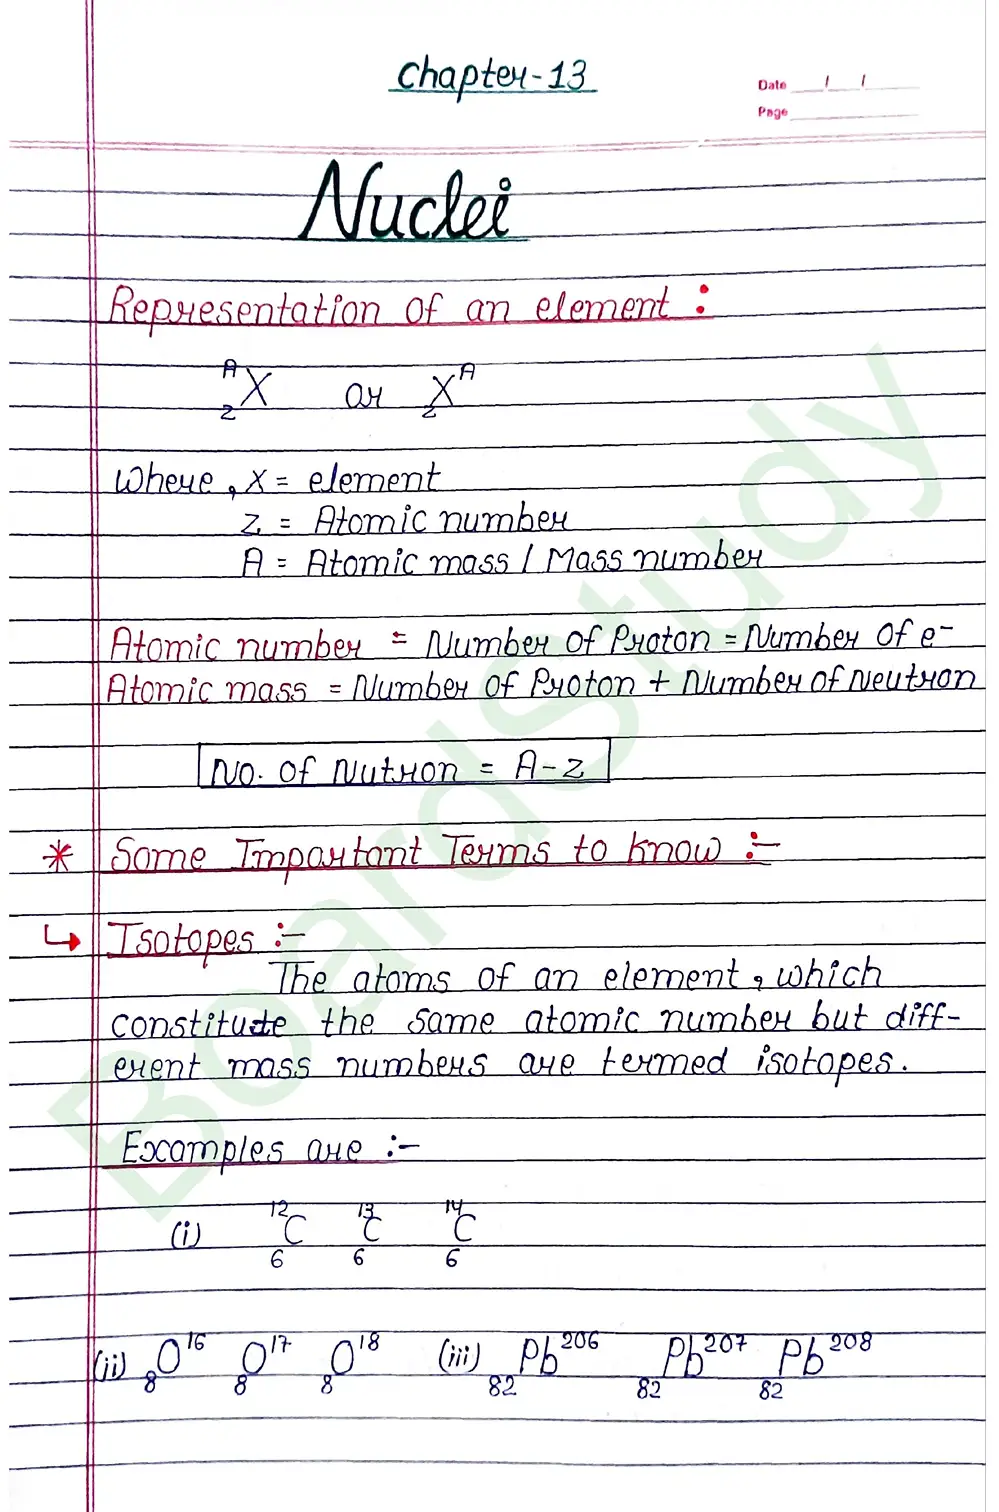 Chapter-13
Date / /
Page
Nuclei
Representation of an element :
ᴬ₂X or ₂Xᴬ
Where, X = element
Z = Atomic number
A = Atomic mass / Mass number
Atomic number = Number of Proton = Number of e⁻
Atomic mass = Number of Proton + Number of Neutron
No. of Nutron = A-Z
* Some Important Terms to know :-
↳ Isotopes :-
The atoms of an element, which
constitute the same atomic number but diff-
erent mass numbers are termed isotopes.
Examples are :-
(i) ¹²₆C ¹³₆C ¹⁴₆C
(ii) ₈O¹⁶ ₈O¹⁷ ₈O¹⁸ (iii) ₈₂Pb²⁰⁶ ₈₂Pb²⁰⁷ ₈₂Pb²⁰⁸
BoardStudy